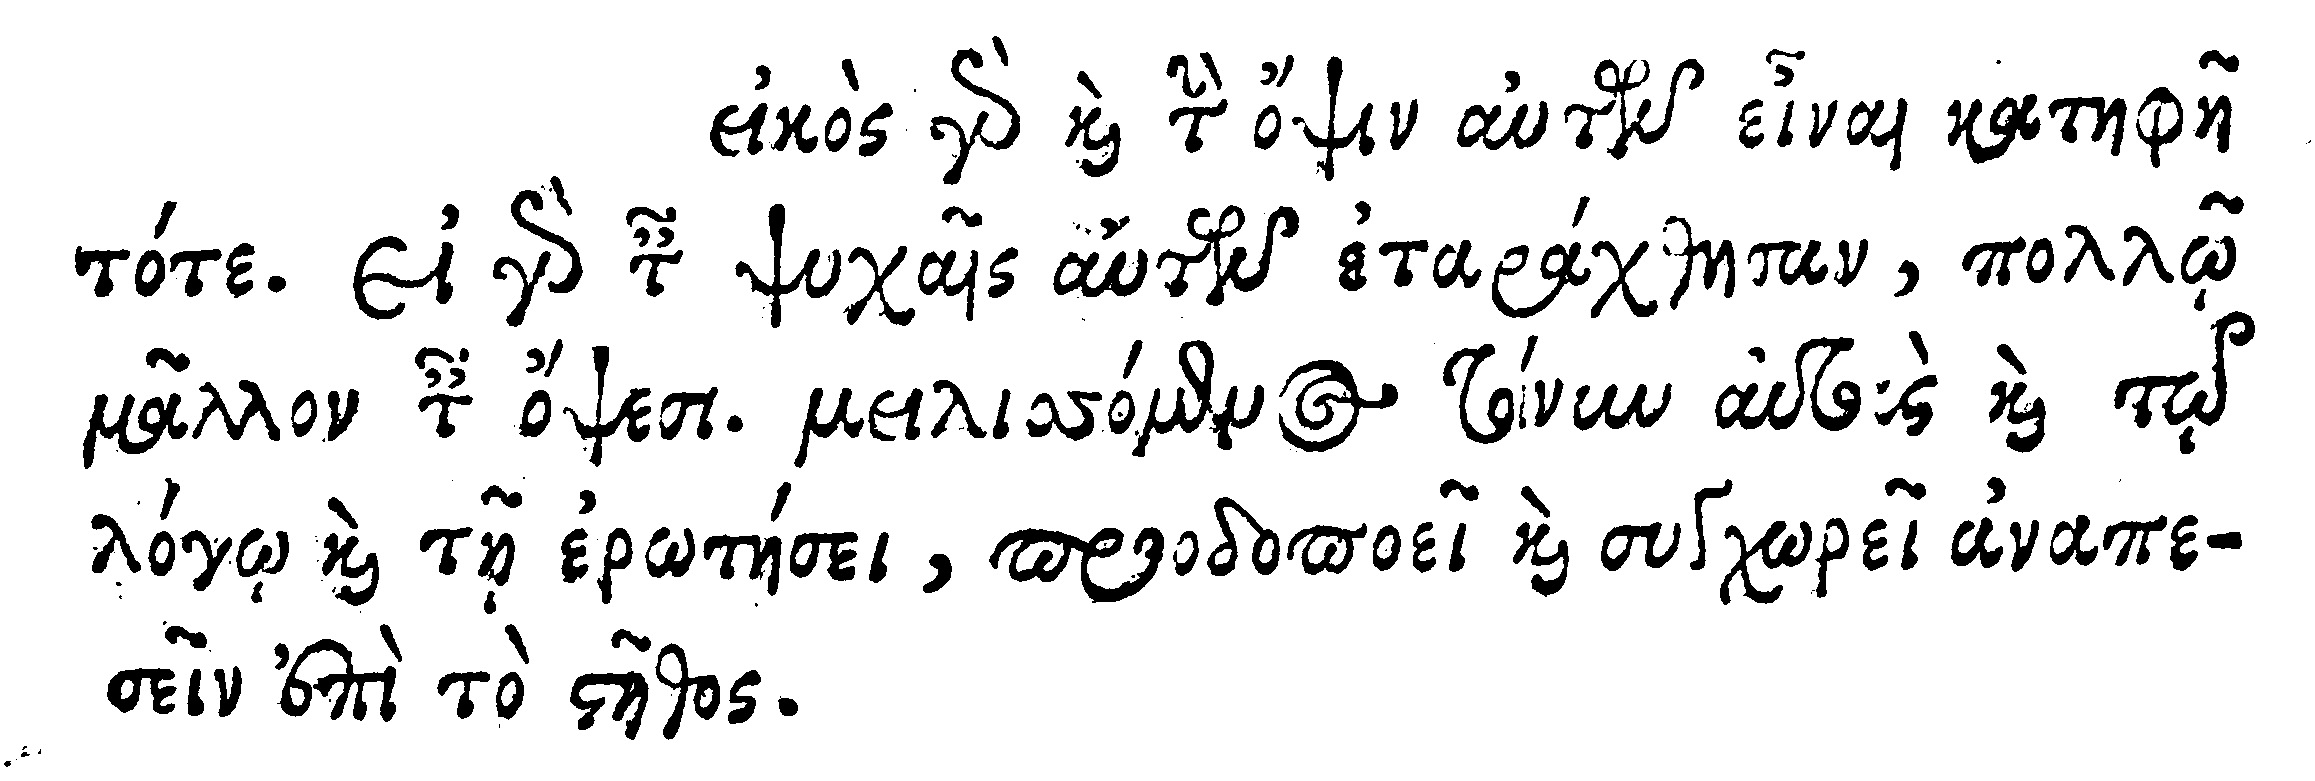 εἰκὸς γὰρ καὶ τὴν ὄψιν αὐτῶν εἶναι κατηφῆ
τότε. Εἰ γὰρ ταῖς ψυχαῖς αὐτῶν ἐταράχθησαν, πολλῷ
μᾶλλον ταῖς ὄψεσι. μειλισσόμενος τοίνυν αὐτοὺς καὶ τῷ
λόγῳ καὶ τῇ ἐρωτήσει, προοδοποιεῖ καὶ συγχωρεῖ ἀναπε-
σεῖν ἐπὶ τὸ στῆθος.